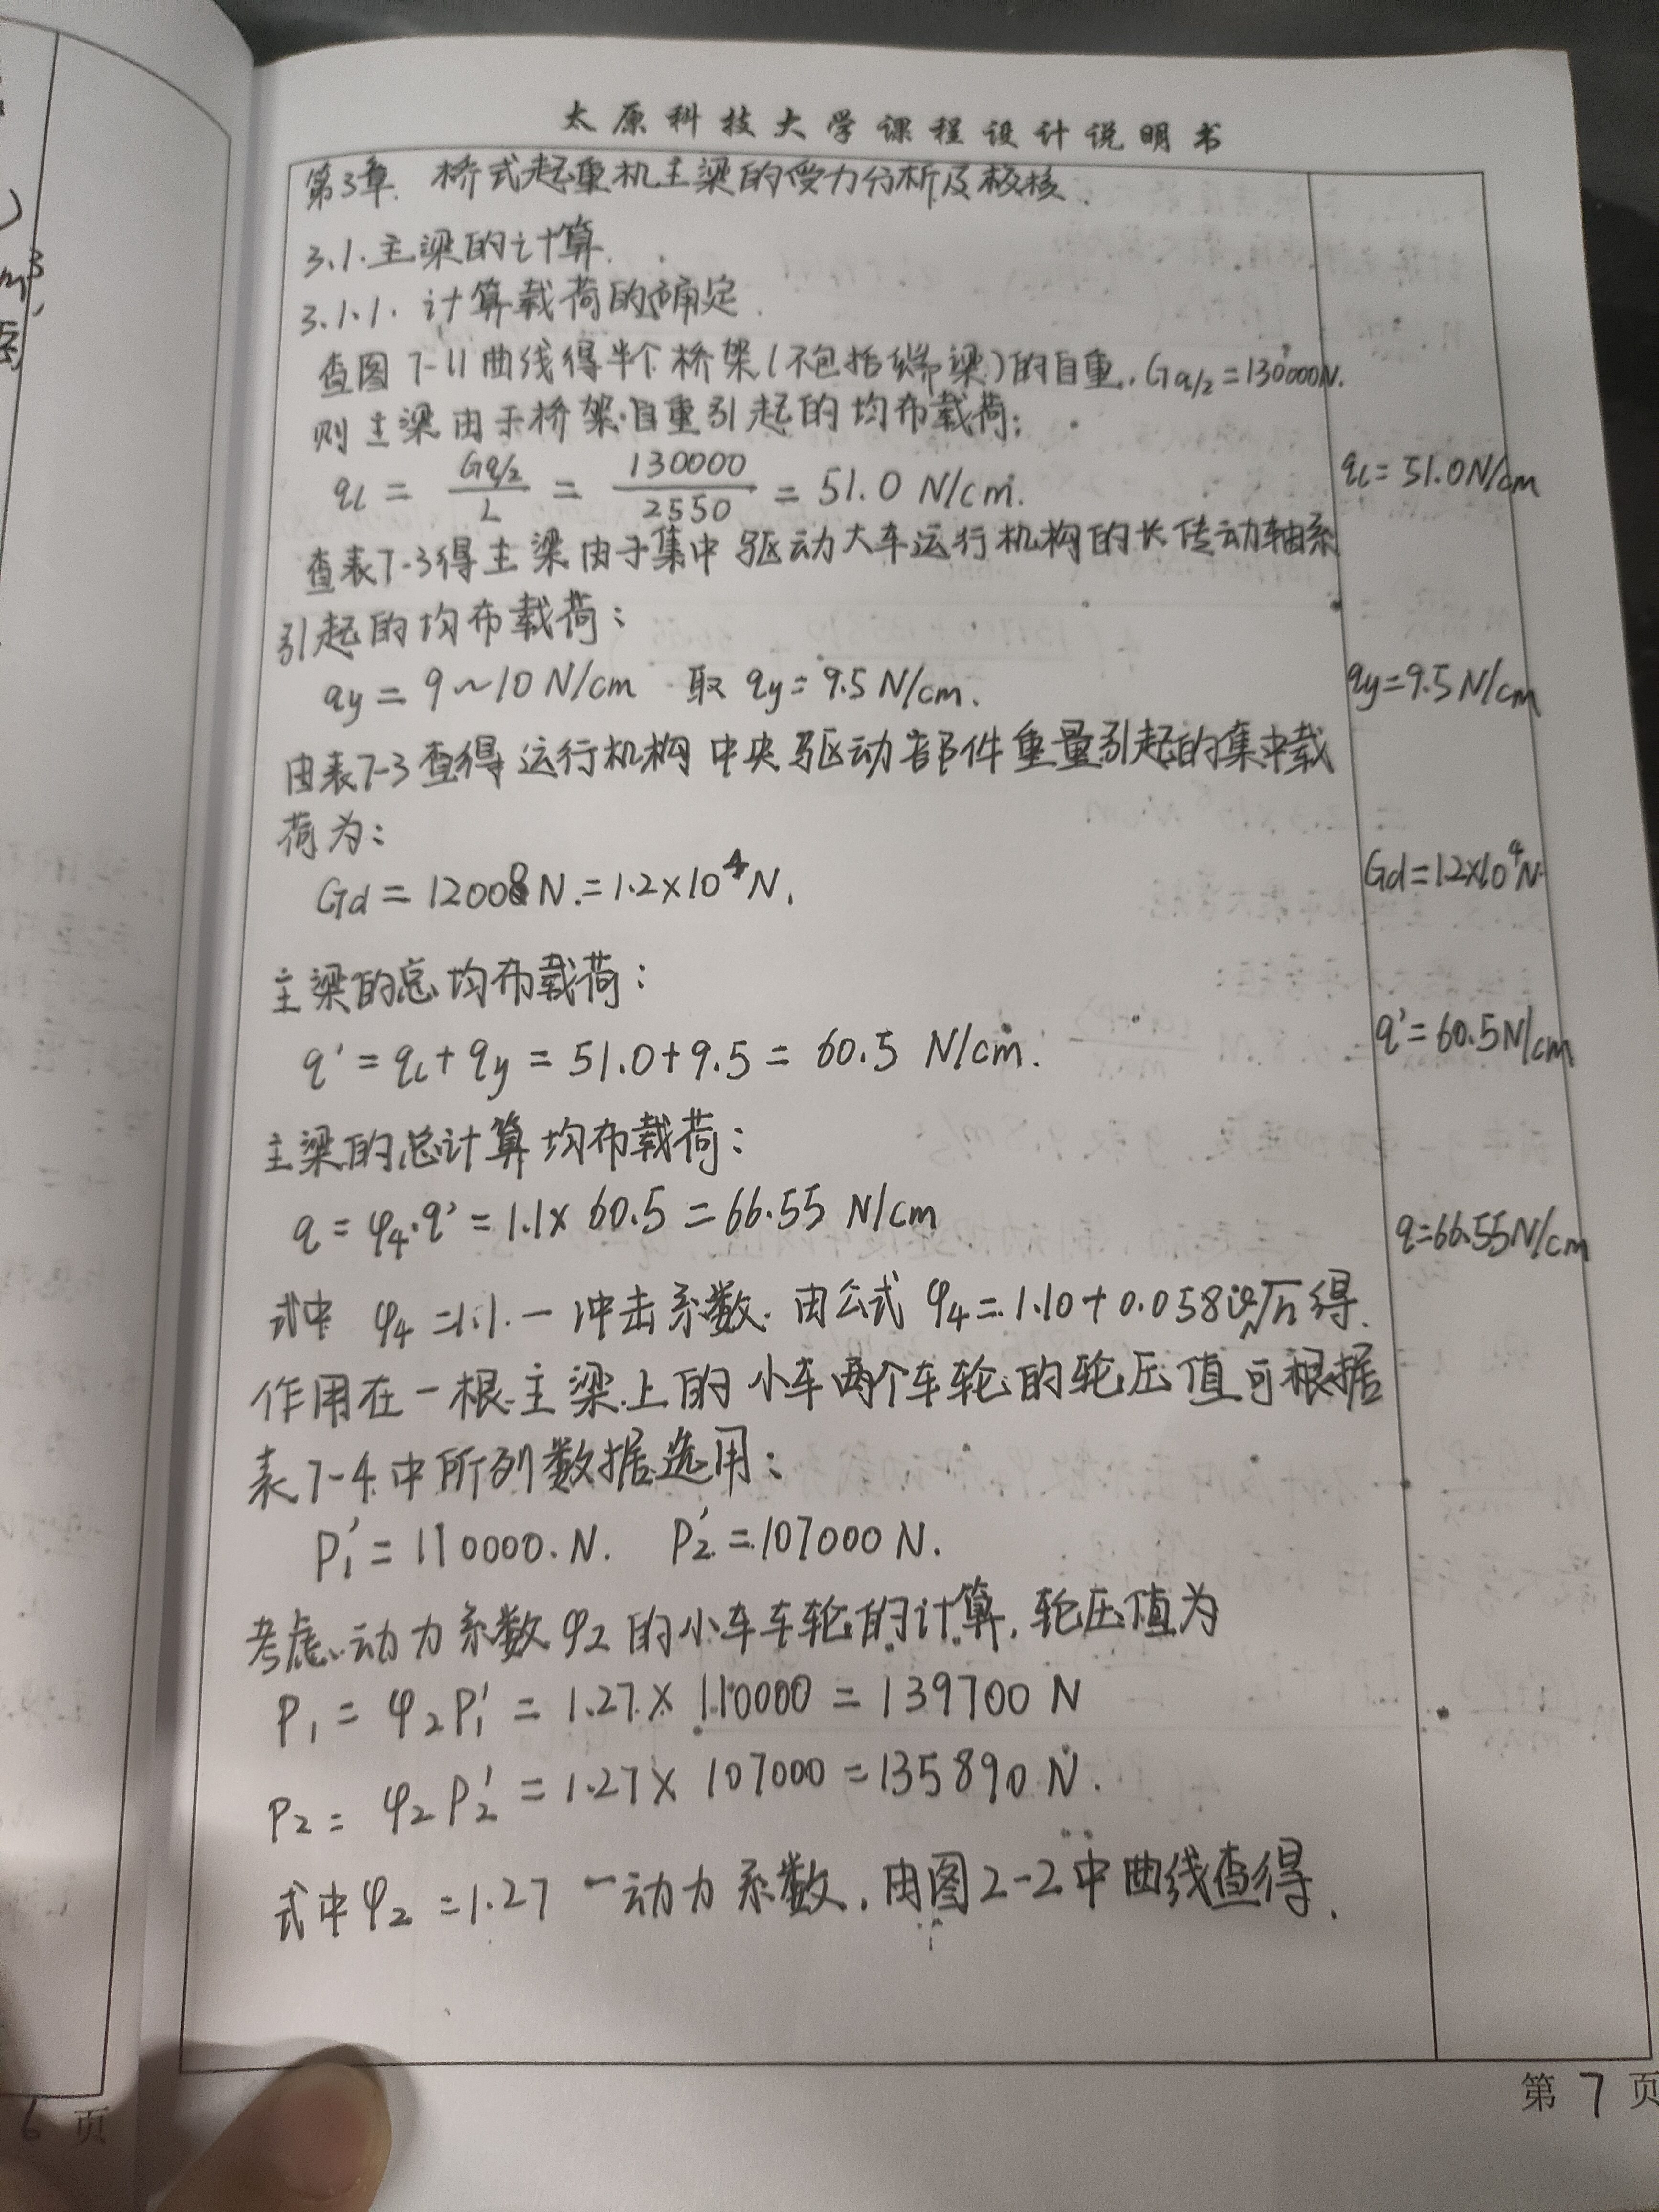 太原科技大学课程设计说明书
第3章. 桥式起重机主梁的受力分析及校核.
3.1.主梁的计算.
3.1.1. 计算载荷的确定.
查图7-11曲线得半个桥架(不包括端梁)的自重,Gq/2=130000N.
则主梁由于桥架自重引起的均布载荷:
qL = Gq/2 / L = 130000 / 2550 = 51.0 N/cm.
qL=51.0N/cm
查表7-3得主梁由于集中驱动大车运行机构的长传动轴系
引起的均布载荷:
qy = 9~10 N/cm 取 qy=9.5N/cm.
qy=9.5N/cm
由表7-3查得运行机构中央驱动部件重量引起的集中载
荷为:
Gd = 12000N.=1.2×10⁴N.
Gd=1.2×10⁴N.
主梁的总均布载荷:
q' = qL+qy = 51.0+9.5 = 60.5 N/cm.
q'=60.5N/cm
主梁的总计算均布载荷:
q = φ4·q' = 1.1× 60.5 = 66.55 N/cm
q=66.55N/cm
式中 φ4=1.1.一冲击系数. 由公式 φ4=1.10+0.058v√h得.
作用在一根主梁上的小车两个车轮的轮压值可根据
表7-4中所列数据选用:
P1'=110000.N. P2'=107000N.
考虑动力系数φ2的小车车轮的计算,轮压值为
P1 = φ2P1' = 1.27× 110000 = 139700 N
P2= φ2P2' = 1.27× 107000 =135890 N.
式中φ2=1.27 一动力系数,由图2-2中曲线查得.
第 7 页
6 页
m³,